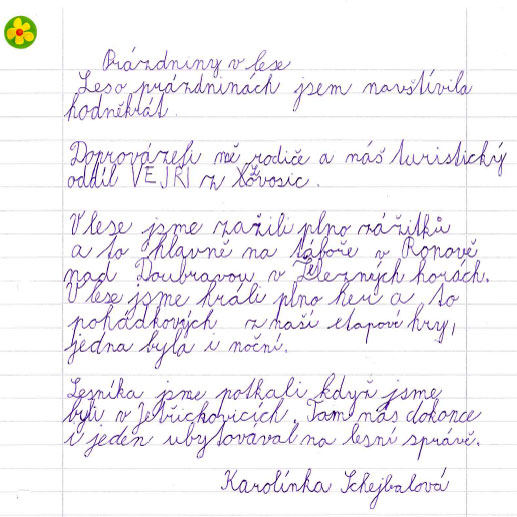 Prázdniny v lese
Leso prázdninách jsem navštívila
hodněkrát.
Doprovázeli mě rodiče a náš turistický
oddíl VEJŘI z Lovosic.
V lese jsme zažili plno zážitků
a to hlavně na táboře v Ronově
nad Doubravou v Železných horách.
V lese jsme hráli plno her a to
pohádkových z naší etapové hry,
jedna byla i noční.
Lesníka jsme potkali když jsme
byli v Jetřichovicích. Tam nás dokonce
i jeden ubytovával na lesní správě.
Karolínka Schejbalová